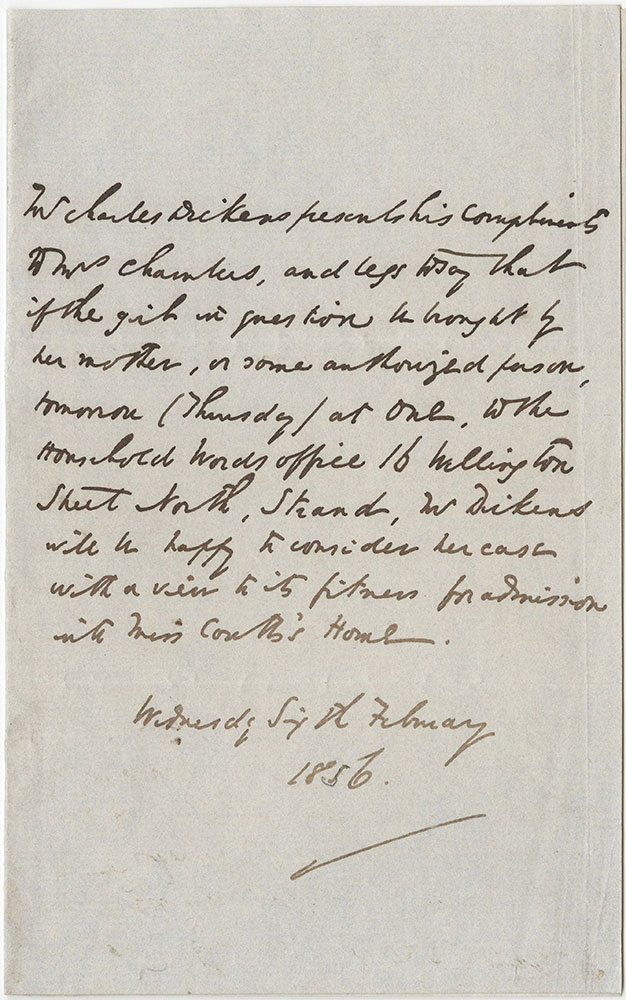 Mr Charles Dickens presents his compliments
to Mrs Chambers, and begs to say that
if the girl in question be brought by
her mother, or some authorized person,
tomorrow (Thursday) at One, to the
Household Words office 16 Wellington
Street North, Strand, Mr Dickens
will be happy to consider her case
with a view to its fitness for admission
into Miss Coutts's Home.
Wednesday Sixth February
1856.